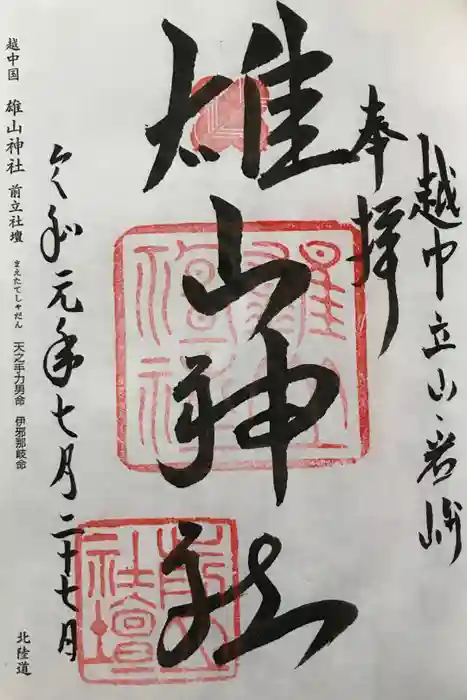 越中立山・岩峅
奉拝
雄山神社
雄山神社
前立社壇
令和元年七月二十七日
越中国 雄山神社 前立社壇 まえたてしゃだん 天之手力男命 伊邪那岐命 北陸道